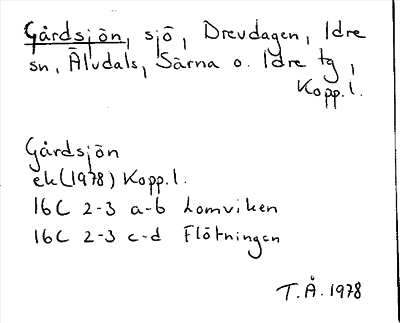 Gårdsjön, sjö, Drevdagen, Idre
sn, Älvdals, Särna o. Idre tg,
Kopp.l.
Gårdsjön
ek(1978) Kopp.l.
16C 2-3 a-b Lomviken
16C 2-3 c-d Flötningen
T.Å. 1978